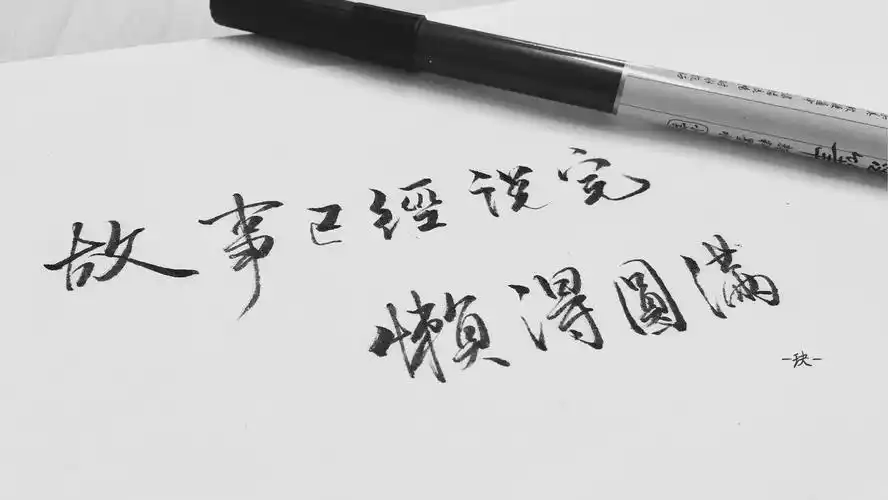 故事已經说完
懶得圓滿
-玦-